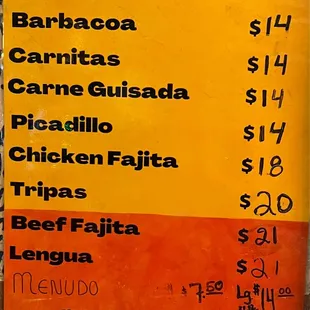 Barbacoa $14
Carnitas $14
Carne Guisada $14
Picadillo $14
Chicken Fajita $18
Tripas $20
Beef Fajita $21
Lengua $21
MENUDO $7.50 Lg #14.00